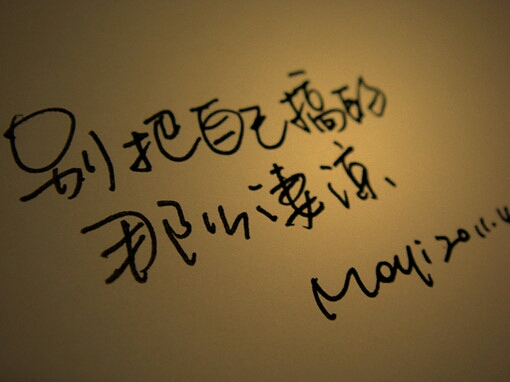 别把自己搞的
那么凄凉、
Moyi 2011.4